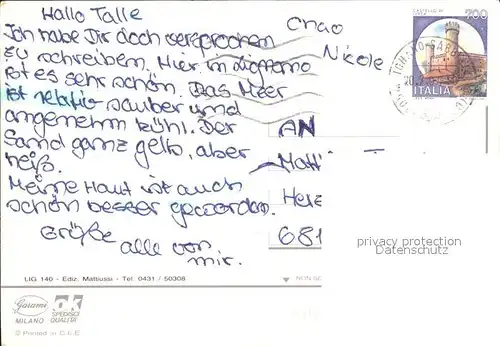 Hallo Talle
Ich habe Dir doch versprochen
zu schreiben. Hier in Lignano
ist es sehr schön. Das Meer
ist relativ sauber und
angenehm kühl. Der
Sand ganz gelb, aber
heiß.
Meine Haut ist auch
schön besser geworden.
Grüße
alle von
mir.
Ciao
Nicole
700
ITALIA
AN
Matt
681
privacy protection
Datenschutz
LIG 140 - Ediz. Mattiussi - Tel. 0431 / 50308
Garami
MILANO
SPEDISCI
QUALITA'
© Printed in C.E.E.